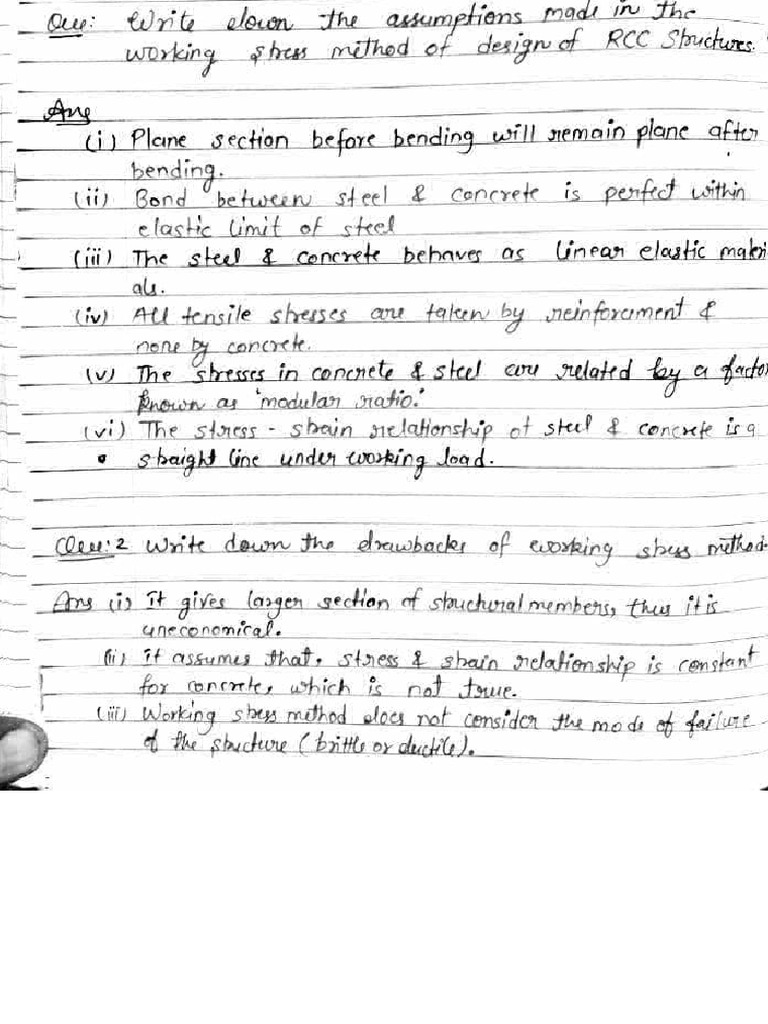 Que: Write down the assumptions made in the
working stress method of design of RCC Structures.
Ans
(i) Plane section before bending will remain plane after
bending.
(ii) Bond between steel & concrete is perfect within
elastic limit of steel
(iii) The steel & concrete behaves as linear elastic materi
als.
(iv) All tensile stresses are taken by reinforcement &
none by concrete.
(v) The stresses in concrete & steel are related by a factor
known as 'modular ratio.'
(vi) The stress - strain relationship of steel & concrete is a
straight line under working load.
Que:2 Write down the drawbacks of working stress method.
Ans (i) It gives larger section of structural members, thus it is
uneconomical.
(ii) it assumes that, stress & strain relationship is constant
for concrete, which is not true.
(iii) Working stress method does not consider the mode of failure
of the structure (brittle or ductile).